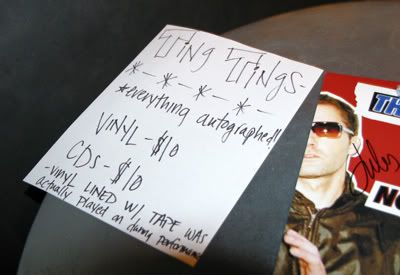 Ting Tings-
*-*-*-*-
*everything autographed!!
VINYL-$10
CDs-$10
-VINYL LINED W/ TAPE WAS
actually played on during performance
TH
Jules
NO